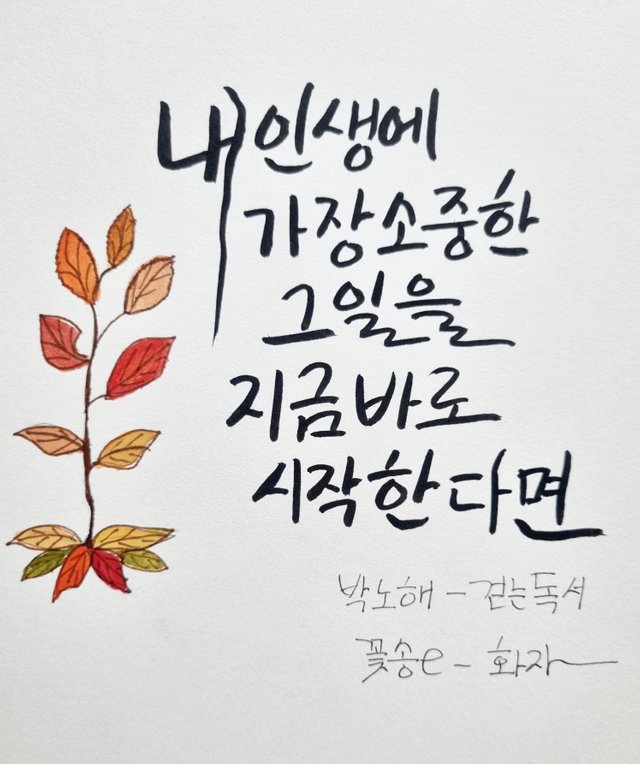 내 인생에
가장 소중한
그 일을
지금 바로
시작한다면
박노해 - 걷는 독서
꽃송e - 화자